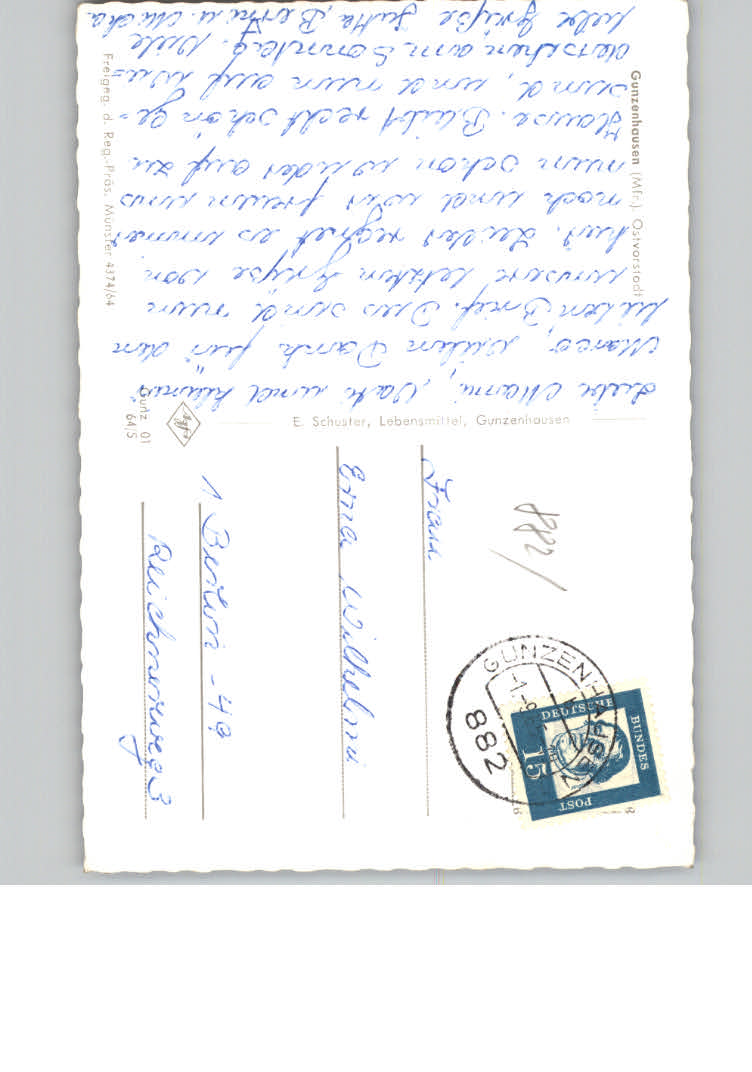 Gunzenhausen (Mfr.), Ostvorstadt
Liebe Mami, Vati und kleiner
Marco, vielen Dank für den
lieben Brief. Dies sind nun
unsere letzten Grüße von
hier. Leider regnet es immer
noch und wir freun uns
nun schon wieder auf zu
Hause. Bleibt recht schön ge=
sund, und nun auf Wie=
dersehen am Sonntag. Viele
liebe Grüße Jutta, Bernd u. Micha
Freigeg. d. Reg.-Präs. Münster 4374/64
E. Schuster, Lebensmittel, Gunzenhausen
Gunz 01
64/5
882/
GUNZENHAUSEN
882
DEUTSCHE
BUNDES
POST
15
Frau
Erna Wilhelmi
1 Berlin - 49
Reichnerweg 3